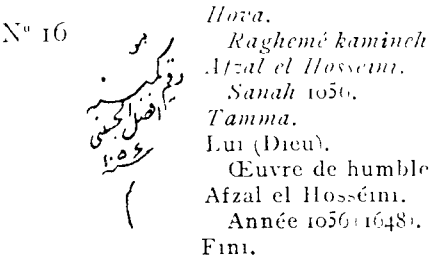 Nº 16
هو
رقم كمينه
افضل الحسینی
سنه ١٠٥٦
Hova.
Raghemé kamineh
Afzal el Hosseini.
Sanah 1056.
Tamma.
Lui (Dieu).
Œuvre de humble
Afzal el Hosséini.
Année 1056 (1648).
Fini.